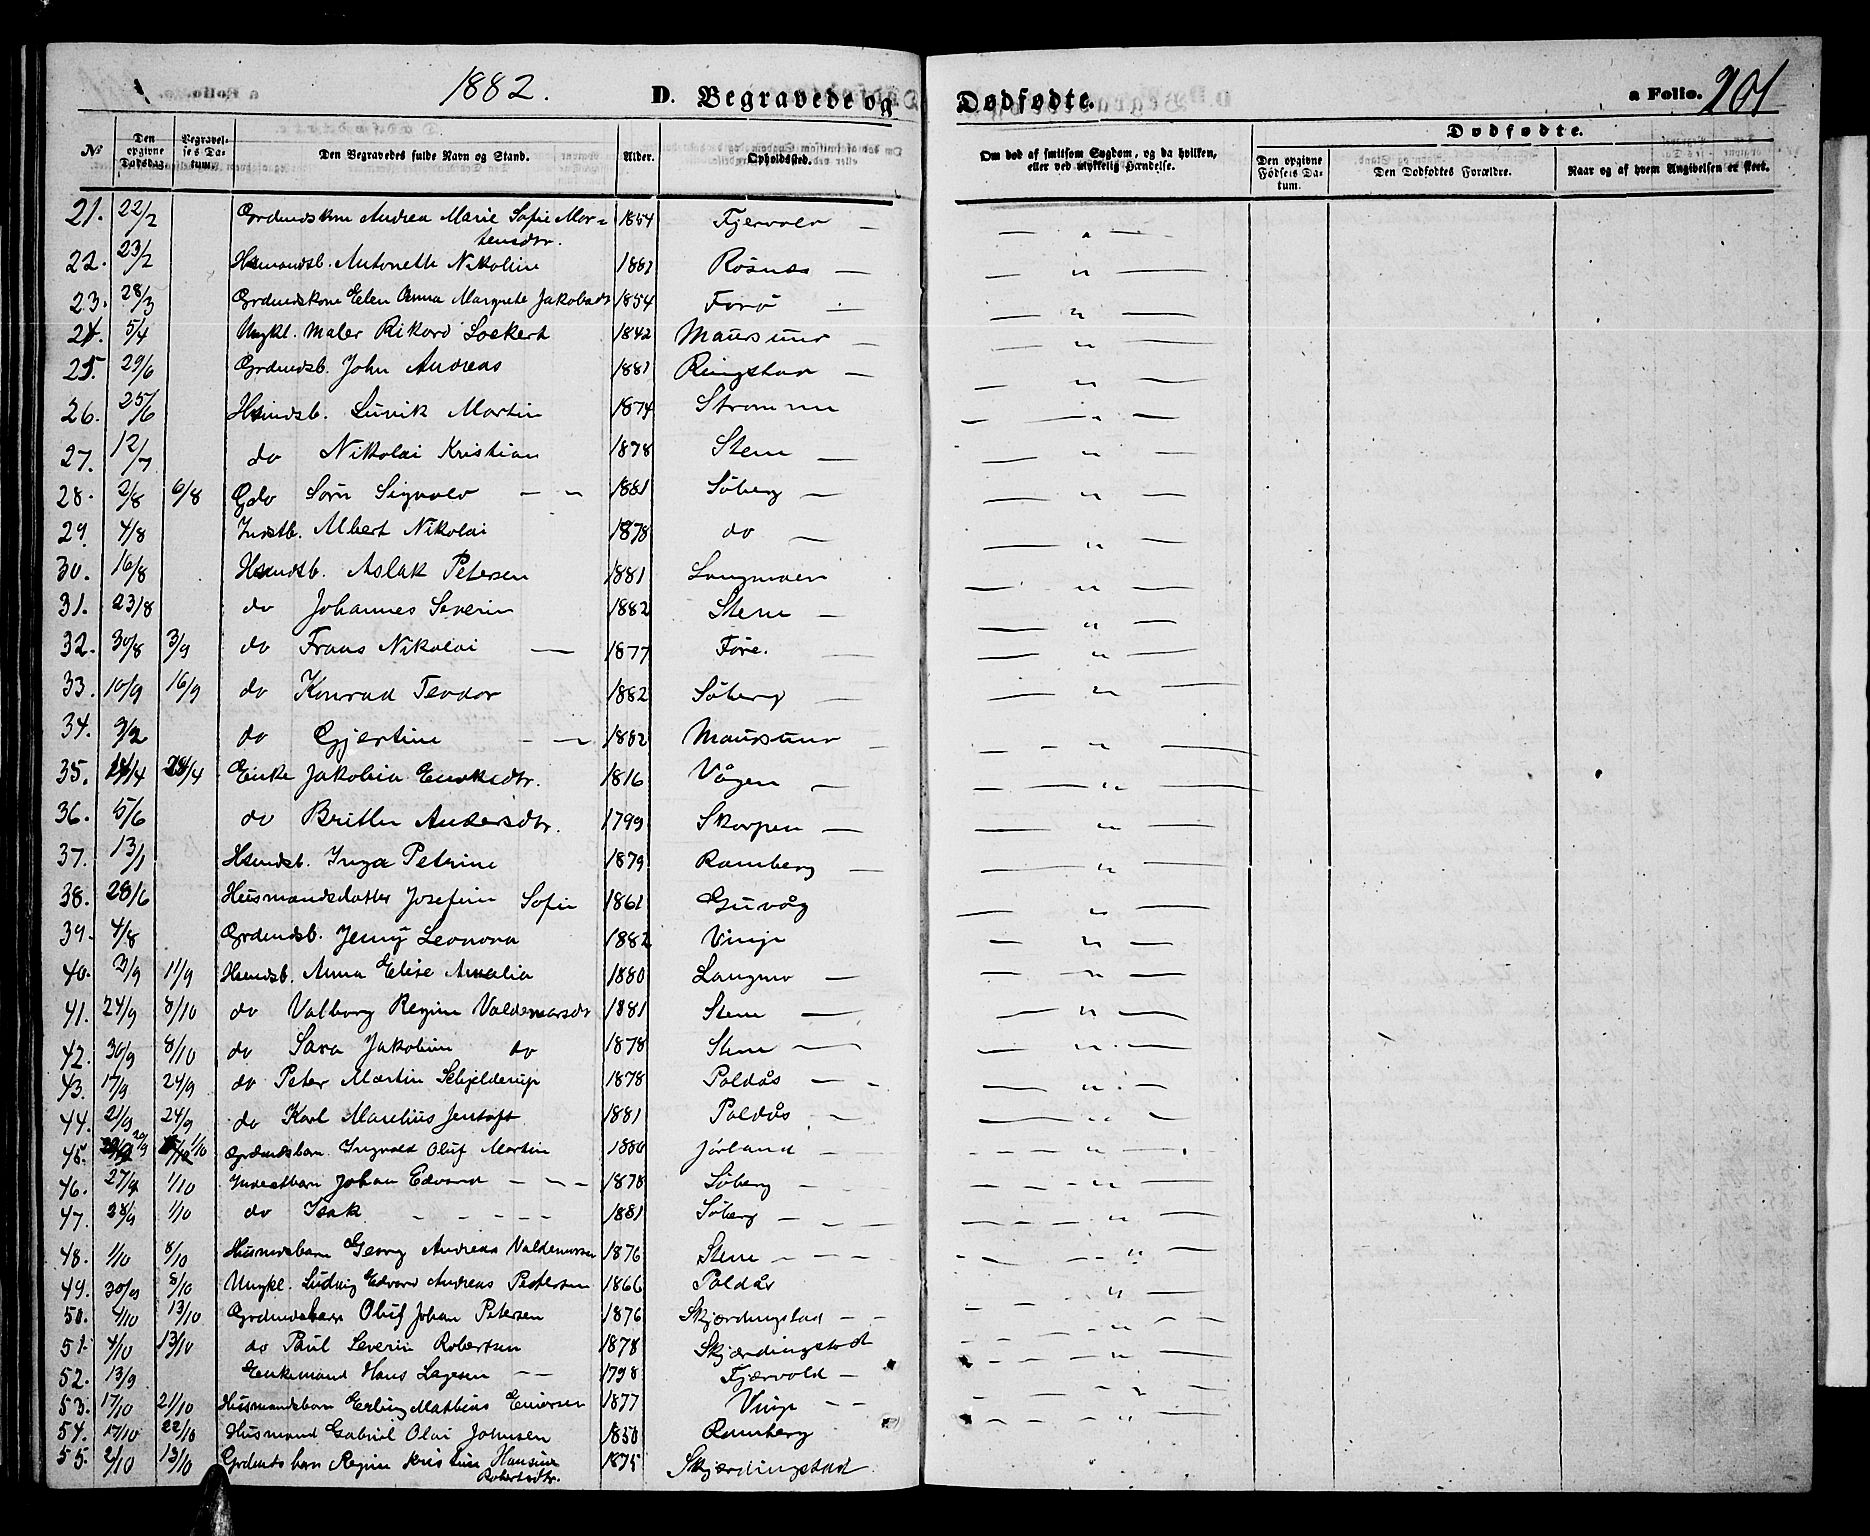 1882.
D. Begravede og Dødfødte.
a Folio. 201
Dødfødte.
No
Den opgivne Dødsdag.
Begravelses Datum.
Den Begravedes fulde Navn og Stand.
Alder.
Opholdssted.
Om død af smitsom Sygdom, og da hvilken, eller ved ulykkelig Hændelse.
Den opgivne Fødsels Datum.
Den Dødfødtes Forældre.
Naar og af hvem Angivelsen er skeet.
21. 22/2 Grdmdskone Andrea Marie Sofie Mor=
tensdtr. 1854 Fjervold — — " —
22. 23/2 Hsmandsb. Antonette Nikoline 1881 Rösnæs — — " —
23. 28/3 Grdmdskone Elen Anna Margrete Jakobsdt 1854 Forö — — " —
24. 5/4 Ungkl. Maler Rikard Lockert 1842 Maursund — — " —
25. 29/6 Grdmdsb. John Andreas 1881 Ringstad — — " —
26. 25/6 Hsmdsb. Luvik Martin 1874 Strømme — " —
27. 12/7 do Nikolai Kristian 1878 Stene — — " —
28. 2/8 6/8 Gdo Sörn Sigvald — — 1881 Söberg — — " —
29. 4/8 Indstb. Albert Nikolai 1878 do — — " —
30. 16/8 Hsmdsb. Aslak Petersen 1881 Langmoen — " —
31. 23/8 do Johannes Severin 1882 Stene — — " —
32. 30/8 3/9 do Frans Nikolai — 1877 Före. — — " —
33. 10/9 16/9 do Konrad Teodor 1882 Söberg — — " —
34. 9/2 do Gjertine — — 1882 Maursund — — " —
35. 14/4 28/4 Enke Jakobia Enoksdtr. 1816 Vågen — — " —
36. 5/6 do Brithe Andersdtr. 1799 Skorpen — — " —
37. 13/1 Hsmdsb. Inga Petrine 1879 Ramberg — — " —
38. 28/6 Husmandsdatter Josefine Sofie 1861 Guvåg — " —
39. 4/8 Grdmdsb. Jenny Leonora 1882 Vinje — " —
40. 3/9 11/9 Hsmdsb. Anna Elise Amalia 1880 Langmo — — " —
41. 24/9 8/10 do Valborg Regine Valdemarsdt 1881 Stene — — " —
42. 30/9 8/10 do Sara Jakobine do 1878 Stene — — " —
43. 17/9 24/9 do Peter Martin Schjelderup 1878 Poldås — — " —
44. 21/9 24/9 do Karl Marelius Jentoft 1881 Poldås — — " —
45. 20/9 1/10 Grdmdsbarn Ingvald Oluf Martin 1880 Jörland — — " —
46. 27/9 1/10 Inderstbarn Johan Edvard — — — 1878 Söberg — — " —
47. 28/9 1/10 do Isak — — — — 1881 Söberg — — " —
48. 1/10 8/10 Husmdsbarn Georg Andreas Valdemarsen 1876 Stene — — — " —
49. 30/9 8/10 Ungkl. Ludvig Edvard Andreas Pettersen 1866 Poldås — " —
50. 4/10 13/10 Grdmdsbarn Oluf Johan Petersen 1876 Skjærdingstad — — — " —
51. 4/10 13/10 do Paul Severin Robertsen 1878 Skjærdingstad — " —
52. 13/9 Enkemand Hans Lagesen — — 1798 Fjærvold — — " —
53. 17/10 21/10 Husmandsbarn Erling Mathias Einersen 1877 Vinje — — — " —
54. 17/10 22/10 Husmand Gabriel Olai Johnsen 1850 Ramberg — " —
55. 2/10 13/10 Grdmdsbarn Regine Kristine Hansine
Robertsdtr. 1875 Skjærdingstad